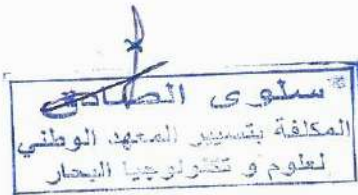 سلوى الصادق
المكلفة بتسيير المعهد الوطني
لعلوم و تكنولوجيا البحار